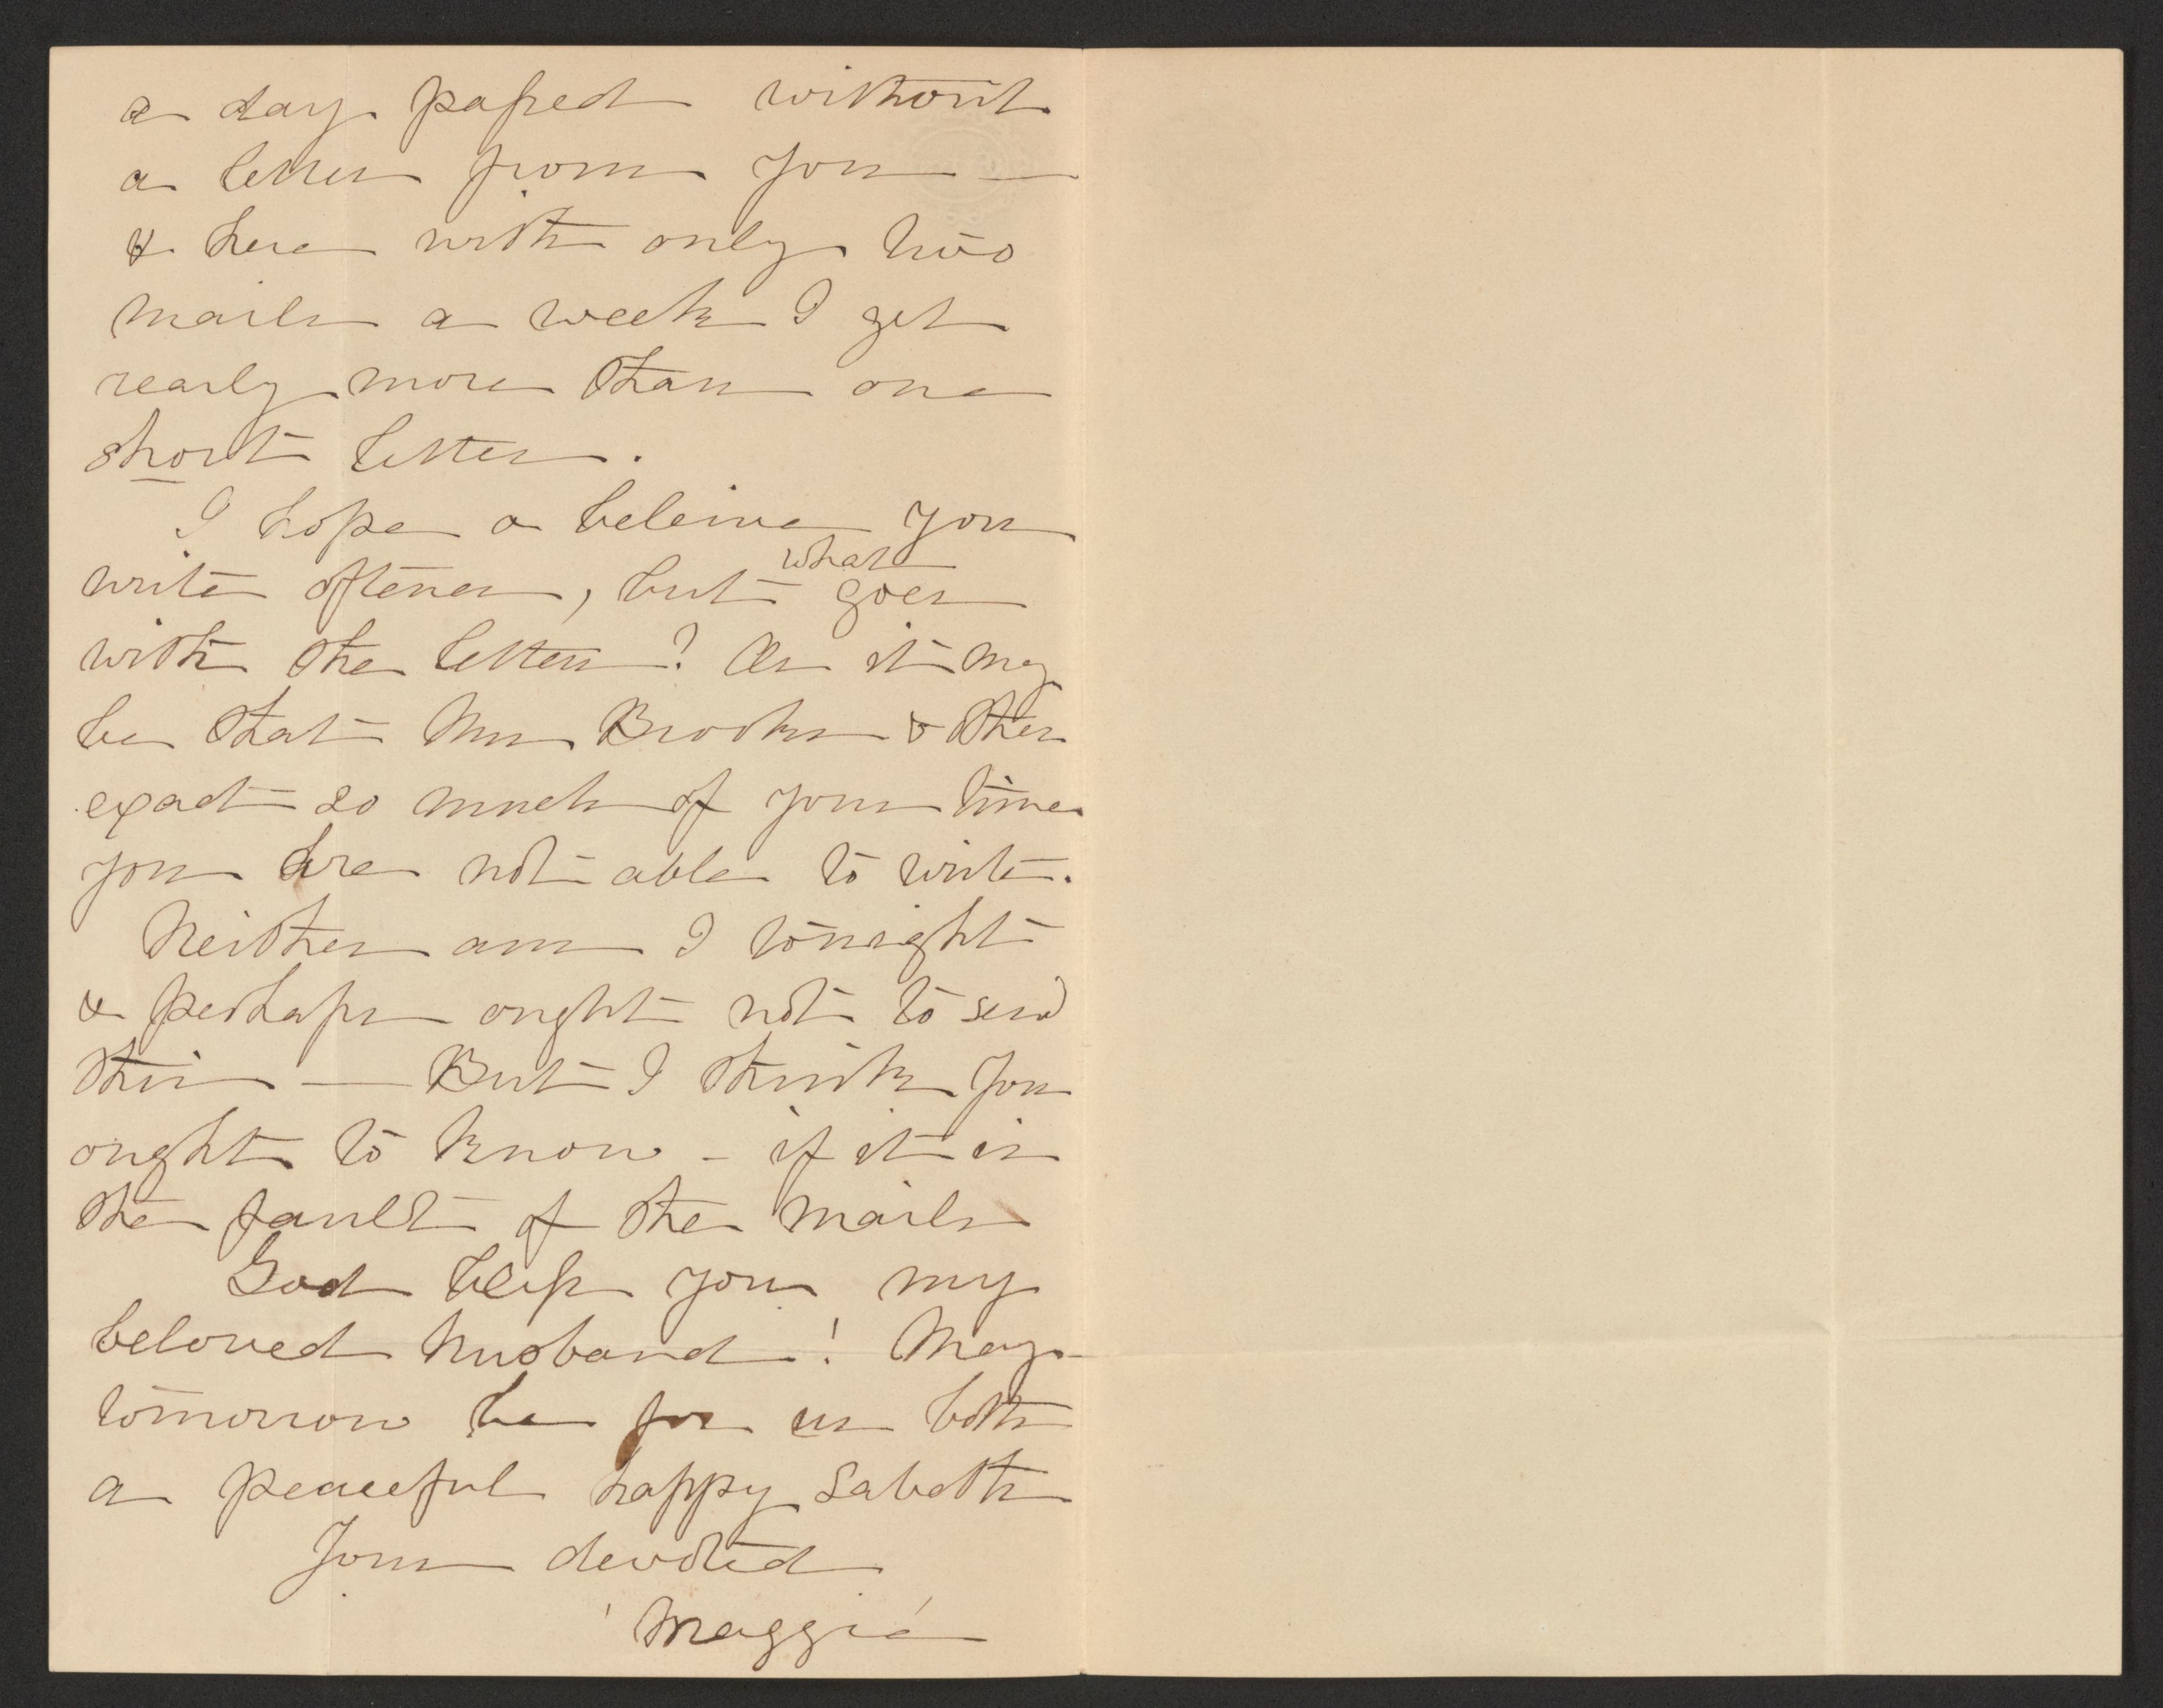 a day passed without
a letter from you —
& here with only two
mails a week I get
rearly more than one
short letter.
I hope & beleive you
what
write oftener, but goes
with the letters? Or it may
be that Mr Brooks & others
exact so much of your time
you are not able to write.
Neither am I tonight
& perhaps ought not to send
this — But I think you
ought to know - if it is
the fault of the mails
God bless you my
beloved husband! May
tomorrow be for us both
a peaceful happy Sabath
Your devoted
'Maggie'